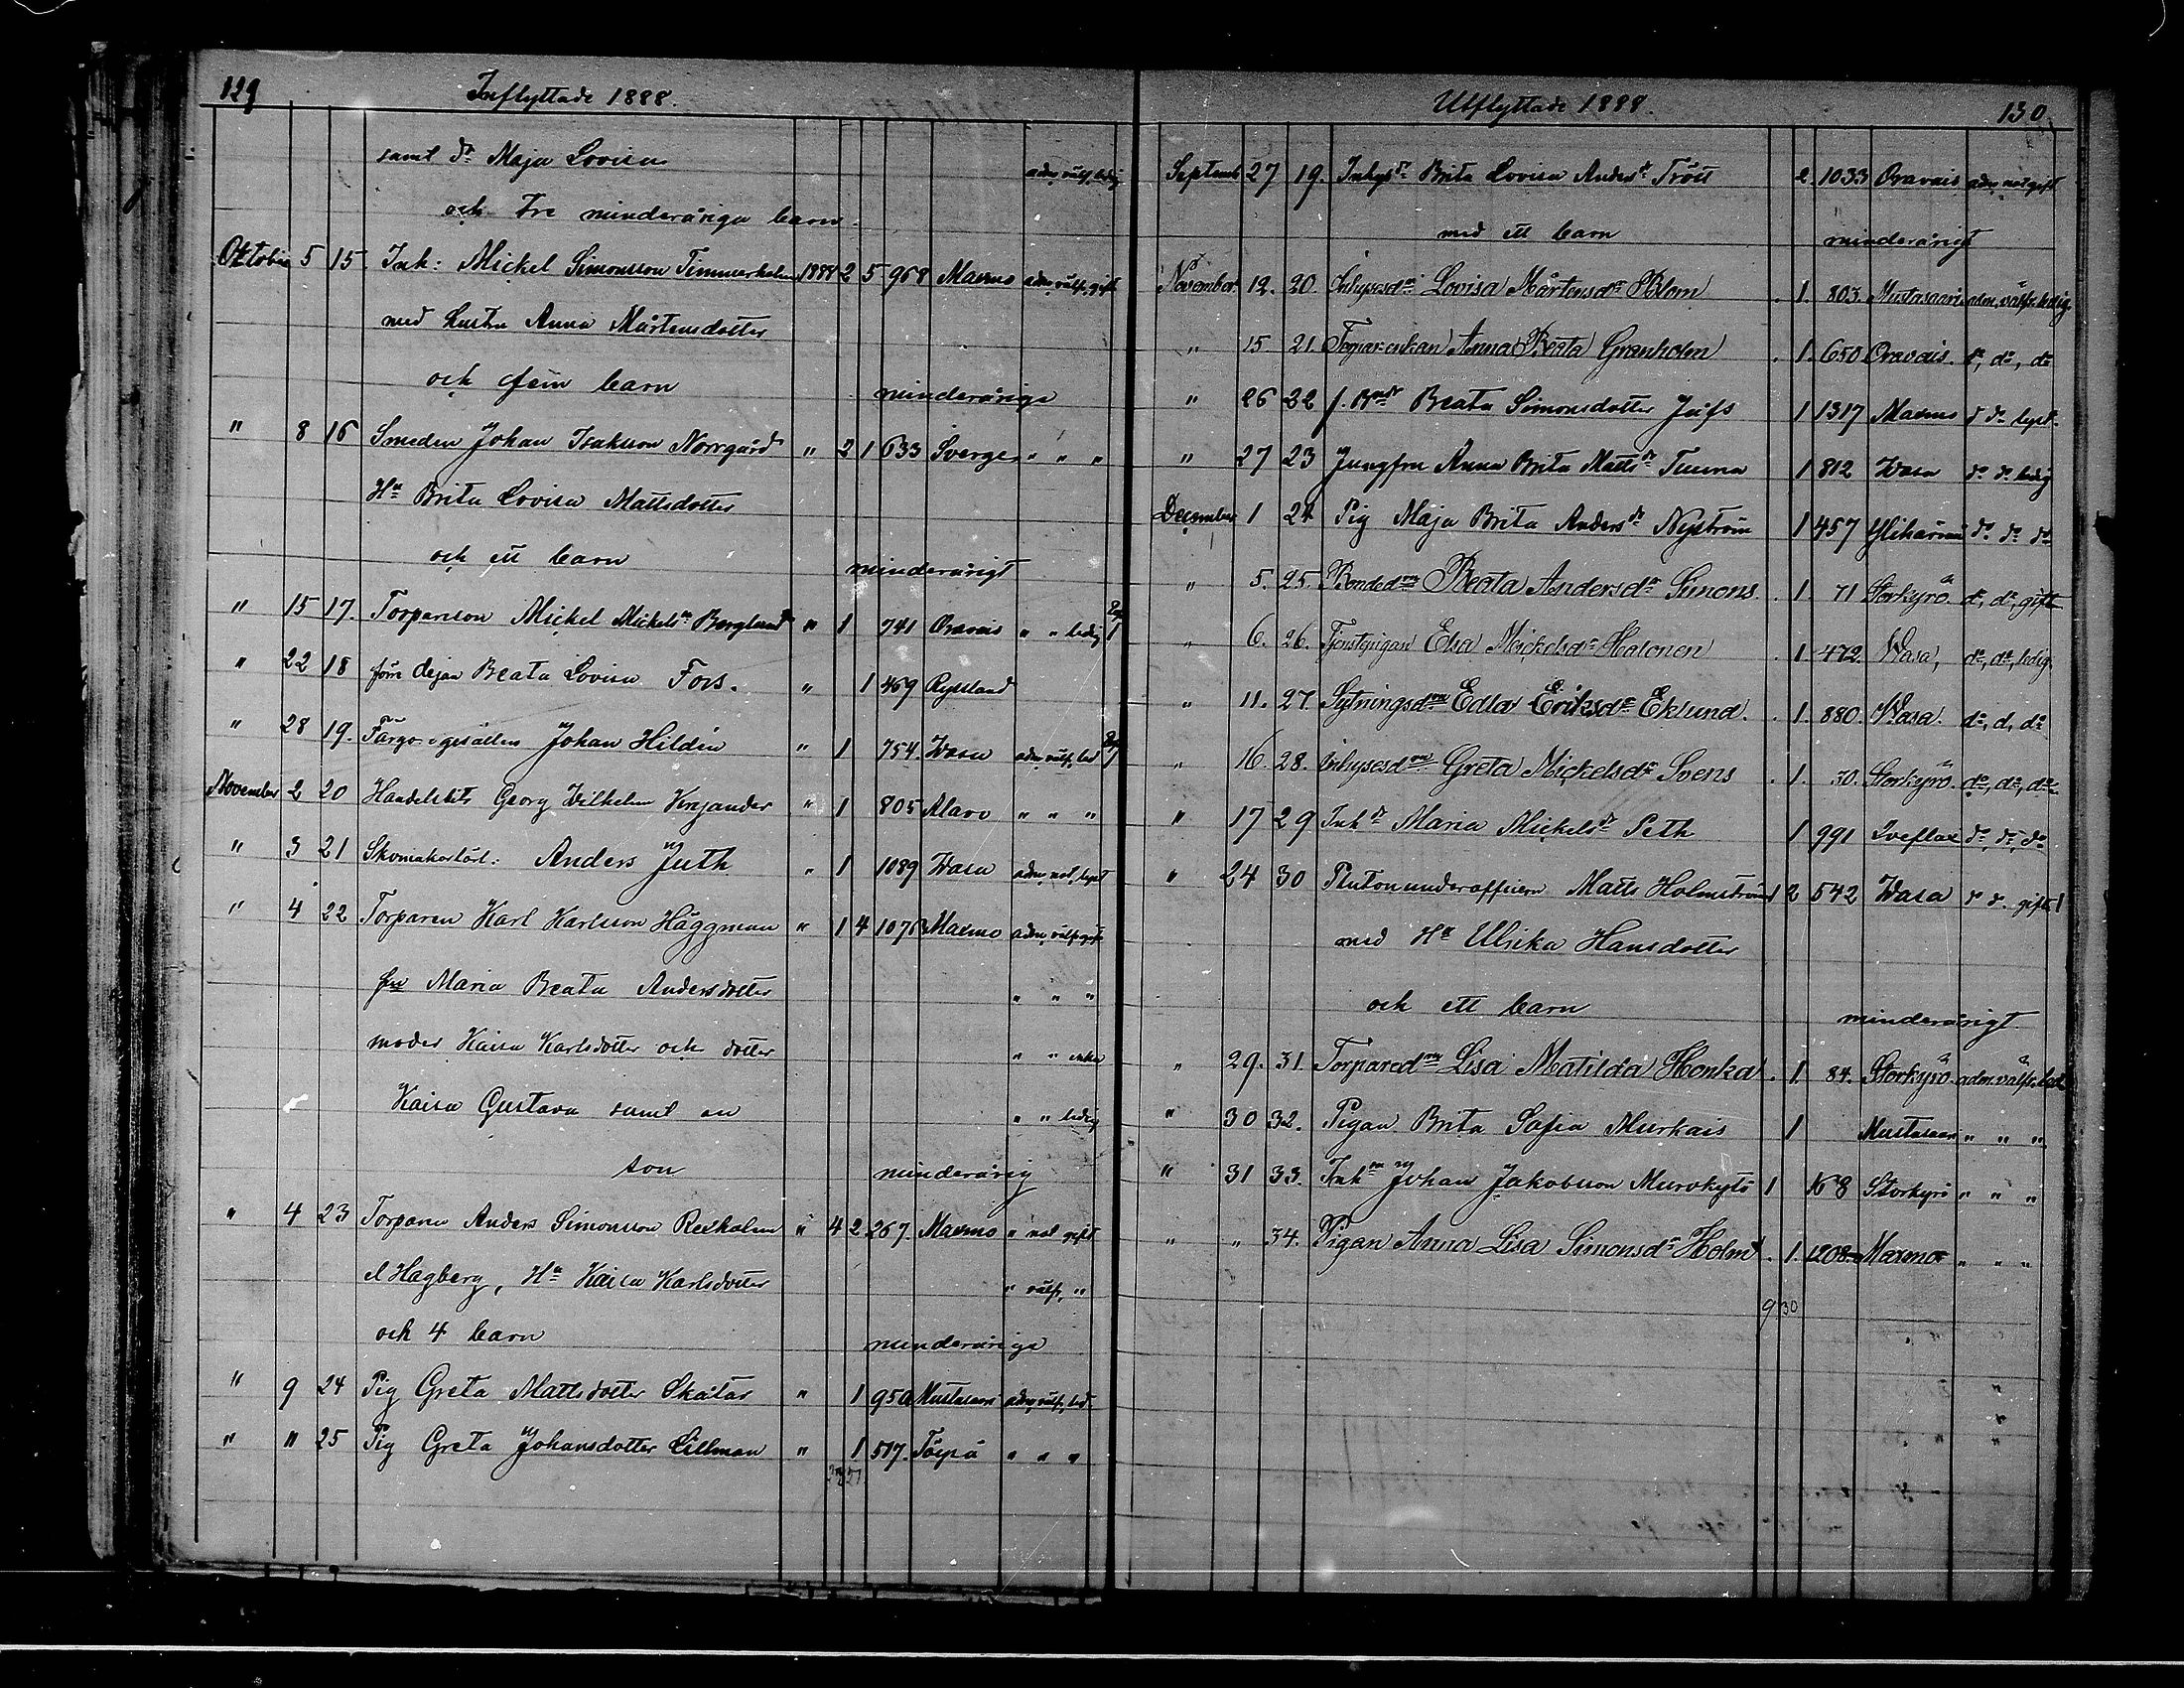 129 Inflyttade 1888.
samt dr Maja Lovisa adm, välfr, ledig
och tre minderåriga barn
Oktober 5 15. Inh: Mickel Simonsson Timmerholm 1888 2 5 968 Maxmo adm, välfr, gift
med hustru Anna Mårtensdotter
och fem barn minderåriga
" 8 16 Smeden Johan Isaksson Norrgård " 2 1 633 Sverge " " "
Hu Brita Lovisa Mattsdotter
och ett barn minderårigt
" 15 17. Torpareson Mickel Mickelsn Berglund " 1 741 Oravais " " ledig 1
" 22 18 förre dejan Beata Lovisa Fors. " 1 469 Ryssland
" 28 19. Färgeri gesällen Johan Hildén " 1 754. Wasa adm, välfr, led 1
November 2 20 Handelsbitr Georg Wilhelm Verjander " 1 805 Alavo " " "
" 3 21 Skomakarlärl: Anders Juth " 1 1089 Wasa adm, not, lyst
" 4 22 Torparen Karl Karlsson Häggman " 1 4 1076 Maxmo adm, välfr gift
fru Maria Beata Andersdotter " " "
moder Kaisa Karlsdotter och dotter " " enka
Kaisa Gustava samt en " " ledig
son minderårig
" 4 23 Torparen Anders Simonsson Rexholm " 4 2 267. Maxmo " not gift
el Hagberg, Hu Kaisa Karlsdotter " välfr, "
och 4 barn minderåriga
" 9 24 Pig Greta Mattsdotter Skatar " 1 950 Mustasaari adm, välfr, led
" " 25 Pig Greta Johansdotter Lillman " 1 517. Töysä " " "
27
Utflyttade 1888. 130.
Septemb 27 19. Inhysdr Brita Lovisa Andersdr Trött 2 1033 Oravais adm, not gift
med ett barn minderårigt
November. 12. 20. Inhysesdr Lovisa Mårtensdr Blom . 1. 803. Mustasaari adm, välfr, ledig.
" 15 21. Torpareenkan Anna Beata Granholm . 1. 650 Oravais. do, do, do
" 26 22 f. Bdr Beata Simonsdotter Jufs 1 1317 Maxmo d do lyst.
" 27 23 Jungfru Anna Brita Mattsdr Tuuna 1 812 Wasa do do ledig
December 1 24 Pig Maja Brita Andersdr Nyström 1 457 Ylihärmä do do do
" 5. 25. Bondedrn Beata Andersdr Simons. . 1. 71 Storkyrö. do, do, gift
" 6. 26. Tjenstpigan Elsa Mickelsdr Hosonen . 1. 472. Wasa, do, do, ledig.
" 11. 27. Sytningsdrn Edla Eriksdr Eklund. . 1. 880. Wasa. do, d, do
" 16. 28. Inhysesdrn Greta Mickelsdr Svens . 1. 70. Storkyrö. do, do, do
" 17 29 Inhdr Maria Mickelsdr Peth 1 991 Qveflax do, do, do
" 24 30 Plutonunderofficern Matts Holmström 2 542 Wasa d d. gift 1
med Hu Ulrika Hansdotter
och ett barn minderårigt
" 29. 31. Torparedrn Lisa Matilda Honka . 1. 84. Storkyrö. adm. välfr. led.
" 30 32. Pigan Brita Sofia Murkais 1 Mustasaari " " "
" 31 33. Inhn Johan Jakobsson Murokytö 1 168 Storkyrö " " "
" " 34. Pigan Anna Lisa Simonsdr Holm . 1. 1208 Maxmo " " "
9 30